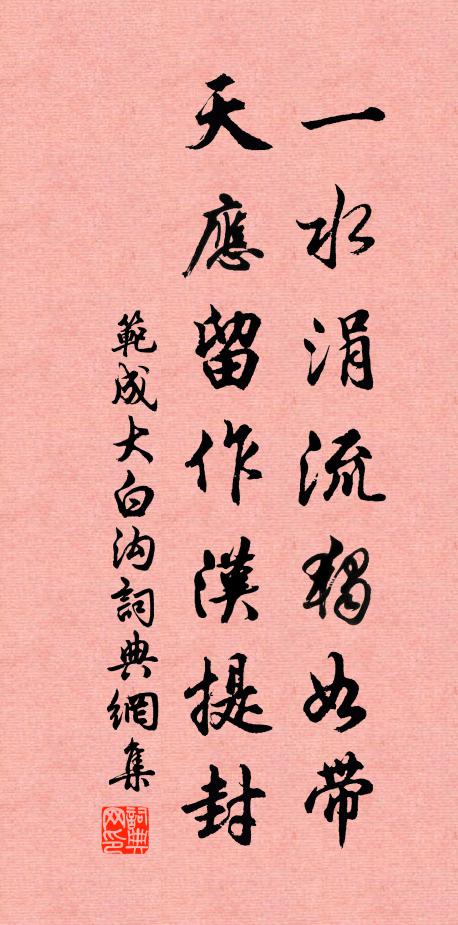 一水涓流獨如帶
天應留作漢提封
範成大白溝詞典網集
詞典网印